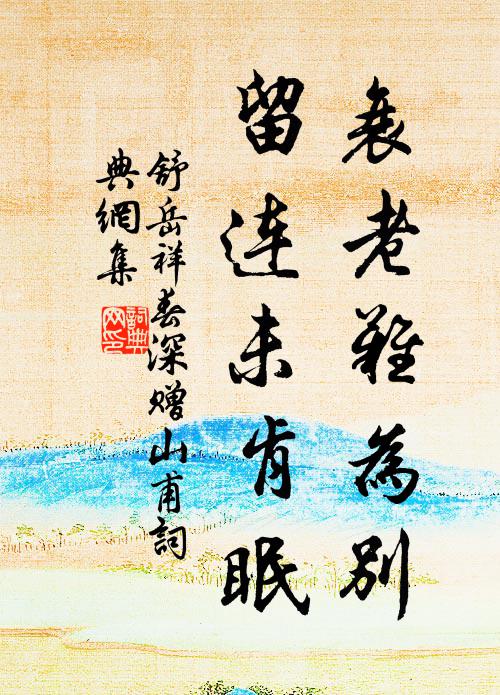 衰老難為別
留连未肯眠
舒岳祥春深赠山甫詞
典網集
詞典网印